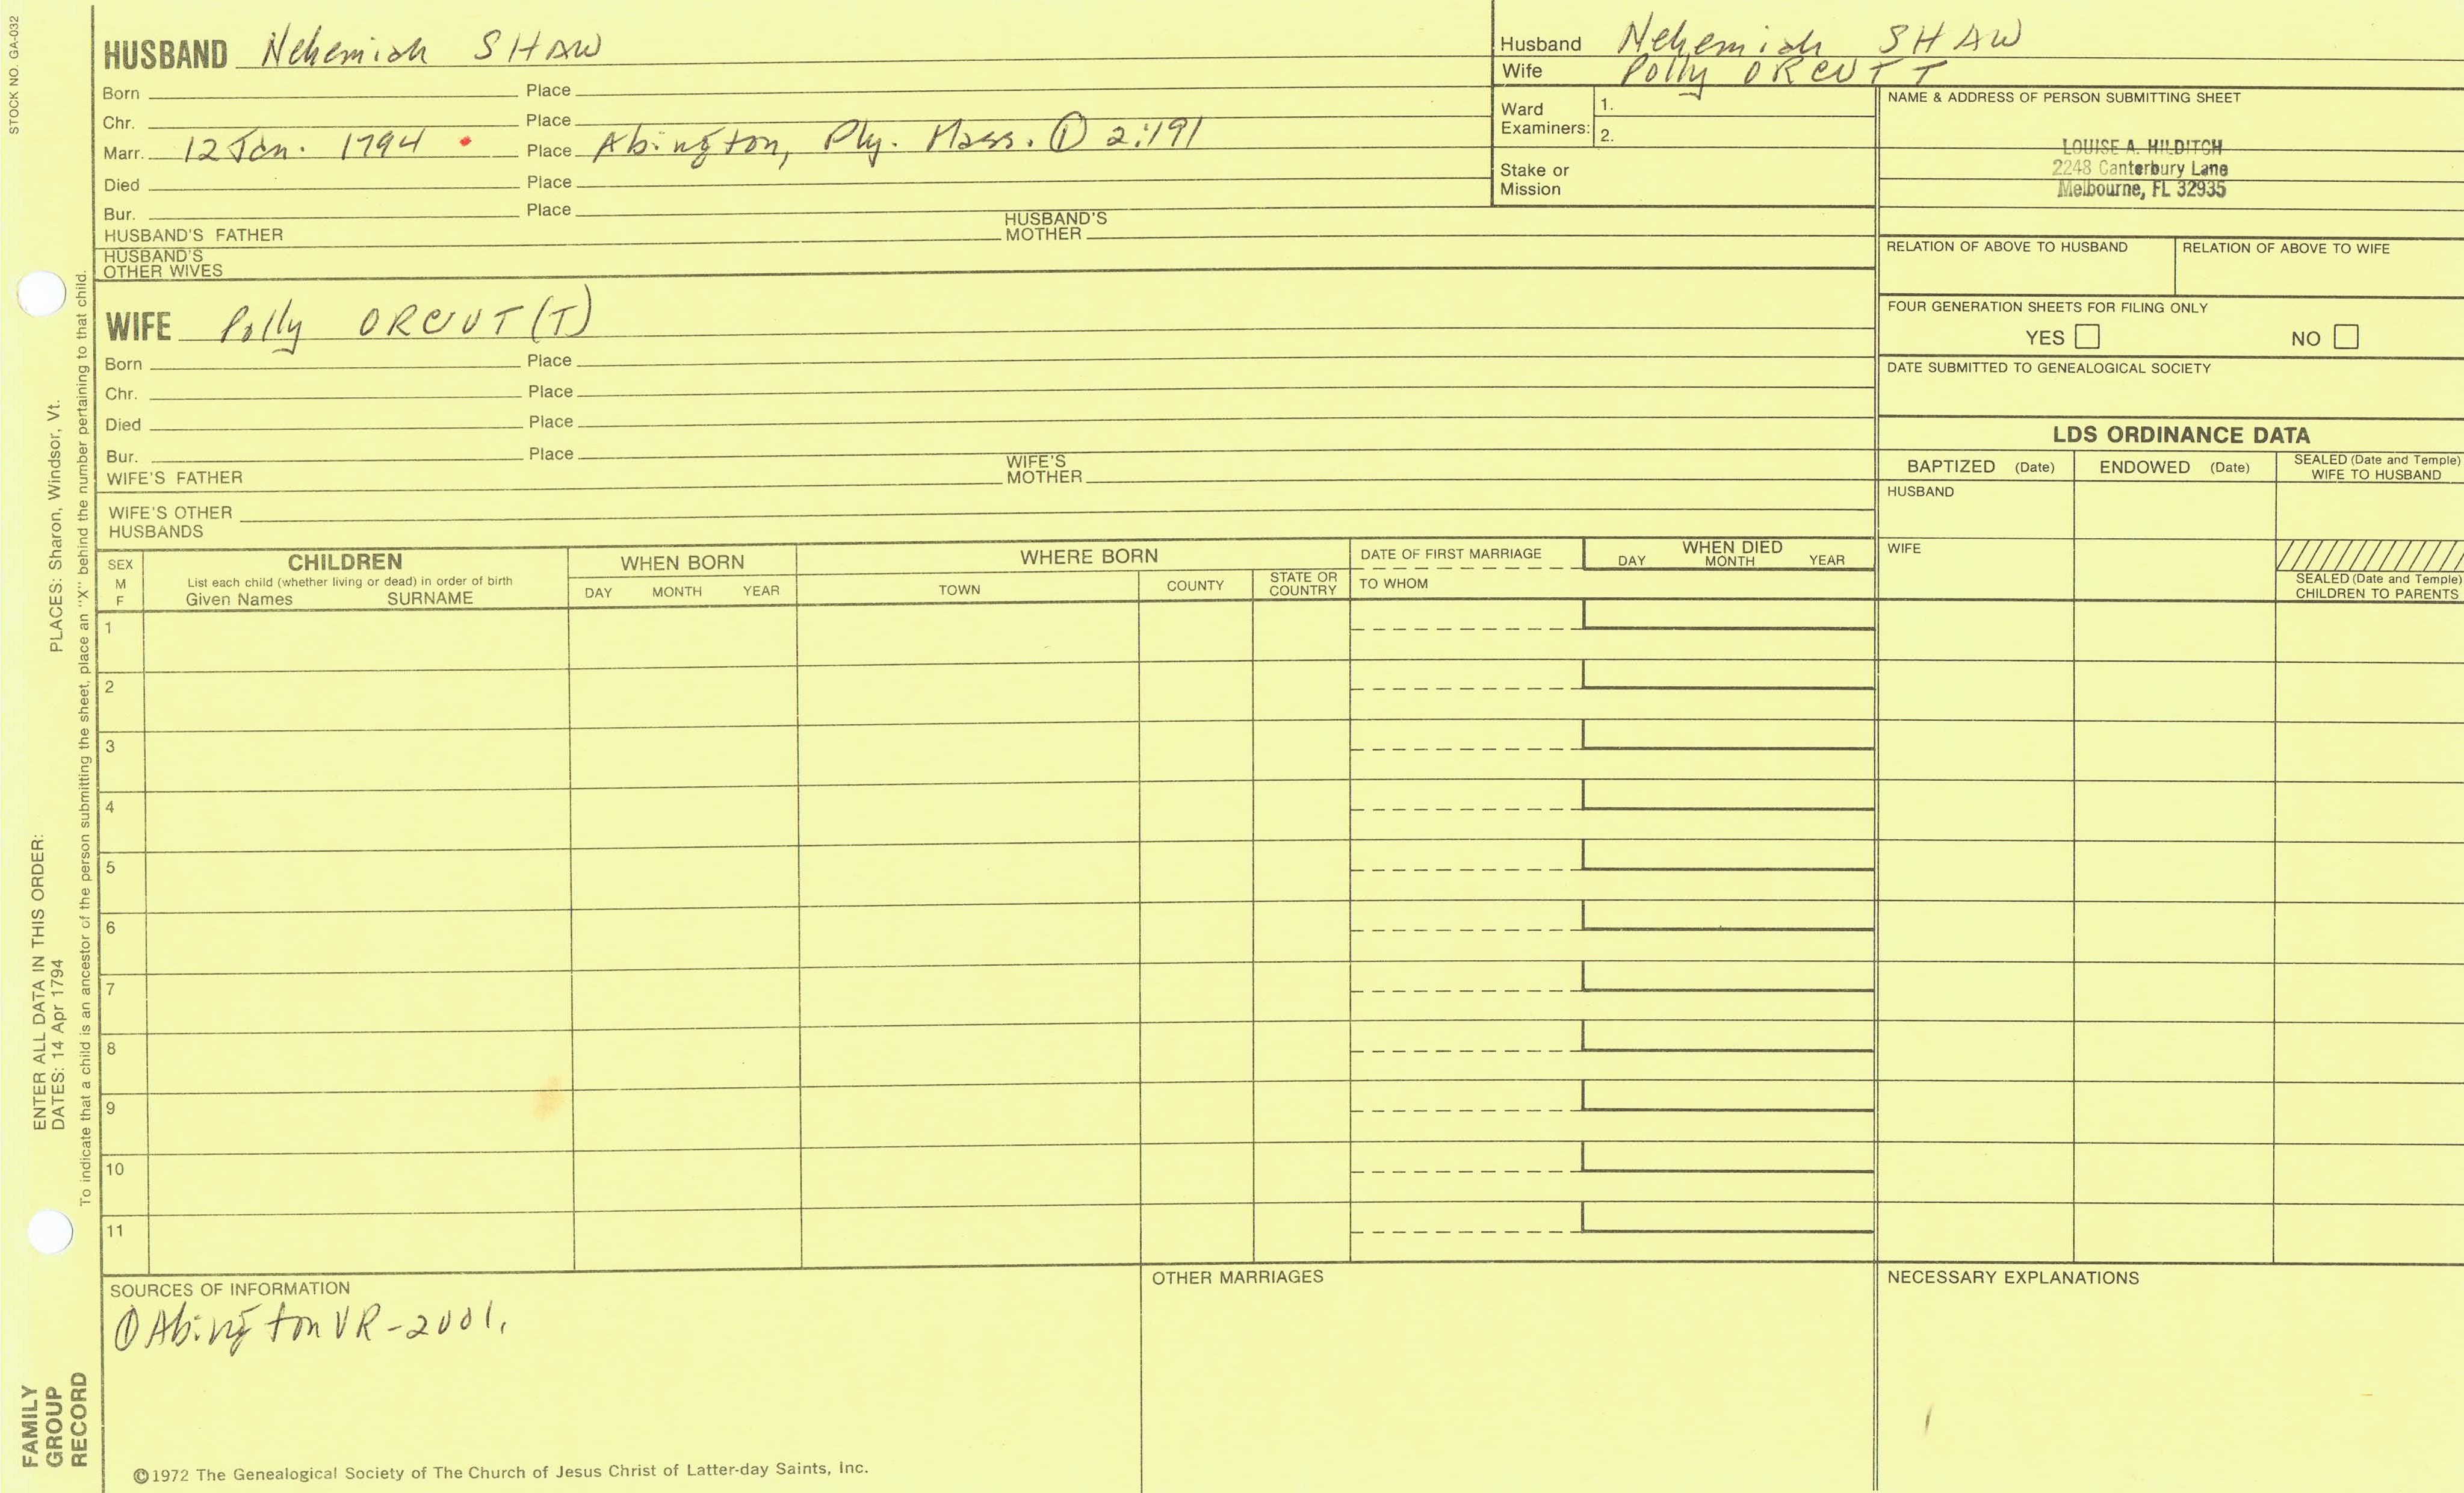 STOCK NO. GA-032
HUSBAND Nehemiah SHAW
Born Place
Chr. Place
Marr. 12 Jan. 1794 Place Abington, Ply. Mass. ① 2:191
Died Place
Bur. Place
HUSBAND'S FATHER HUSBAND'S MOTHER
HUSBAND'S OTHER WIVES
Husband Nehemiah SHAW
Wife Polly ORCUTT
Ward Examiners: 1.
2.
Stake or Mission
NAME & ADDRESS OF PERSON SUBMITTING SHEET
LOUISE A. HILDITCH
2248 Canterbury Lane
Melbourne, FL 32935
RELATION OF ABOVE TO HUSBAND RELATION OF ABOVE TO WIFE
FOUR GENERATION SHEETS FOR FILING ONLY
YES NO
DATE SUBMITTED TO GENEALOGICAL SOCIETY
WIFE Polly ORCUT(T)
Born Place
Chr. Place
Died Place
Bur. Place
WIFE'S FATHER WIFE'S MOTHER
WIFE'S OTHER HUSBANDS
LDS ORDINANCE DATA
BAPTIZED (Date) ENDOWED (Date) SEALED (Date and Temple) WIFE TO HUSBAND
HUSBAND
WIFE
SEALED (Date and Temple) CHILDREN TO PARENTS
SEX M F
CHILDREN
List each child (whether living or dead) in order of birth
Given Names SURNAME
WHEN BORN
DAY MONTH YEAR
WHERE BORN
TOWN COUNTY STATE OR COUNTRY
DATE OF FIRST MARRIAGE
TO WHOM
WHEN DIED
DAY MONTH YEAR
1
2
3
4
5
6
7
8
9
10
11
SOURCES OF INFORMATION
① Abington VR-2001.
OTHER MARRIAGES
NECESSARY EXPLANATIONS
©1972 The Genealogical Society of The Church of Jesus Christ of Latter-day Saints, Inc.
FAMILY
GROUP
RECORD
ENTER ALL DATA IN THIS ORDER:
DATES: 14 Apr 1794 PLACES: Sharon, Windsor, Vt.
To indicate that a child is an ancestor of the person submitting the sheet, place an "X" behind the number pertaining to that child.